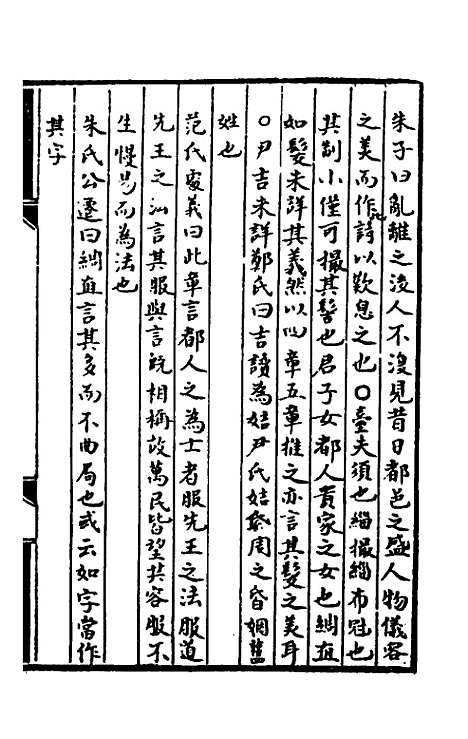 朱子曰亂離之後人不復見昔日都邑之盛人物儀容
之美而作此詩以歎息之也○臺夫須也緇撮緇布冠也
其制小僅可撮其髻也君子女都人貴家之女也綢直
如髮未詳其義然以四章五章推之亦言其髮之美耳
○尹吉未詳鄭氏曰吉讀為姞尹氏姞氏周之昏姻舊
姓也
范氏處義曰此章言都人之為士者服先王之法服道
先王之法言其服與言既相稱故萬民皆望其容服不
生慢易而為法也
朱氏公遷曰綢直言其多而不曲局也或云如字當作
其字